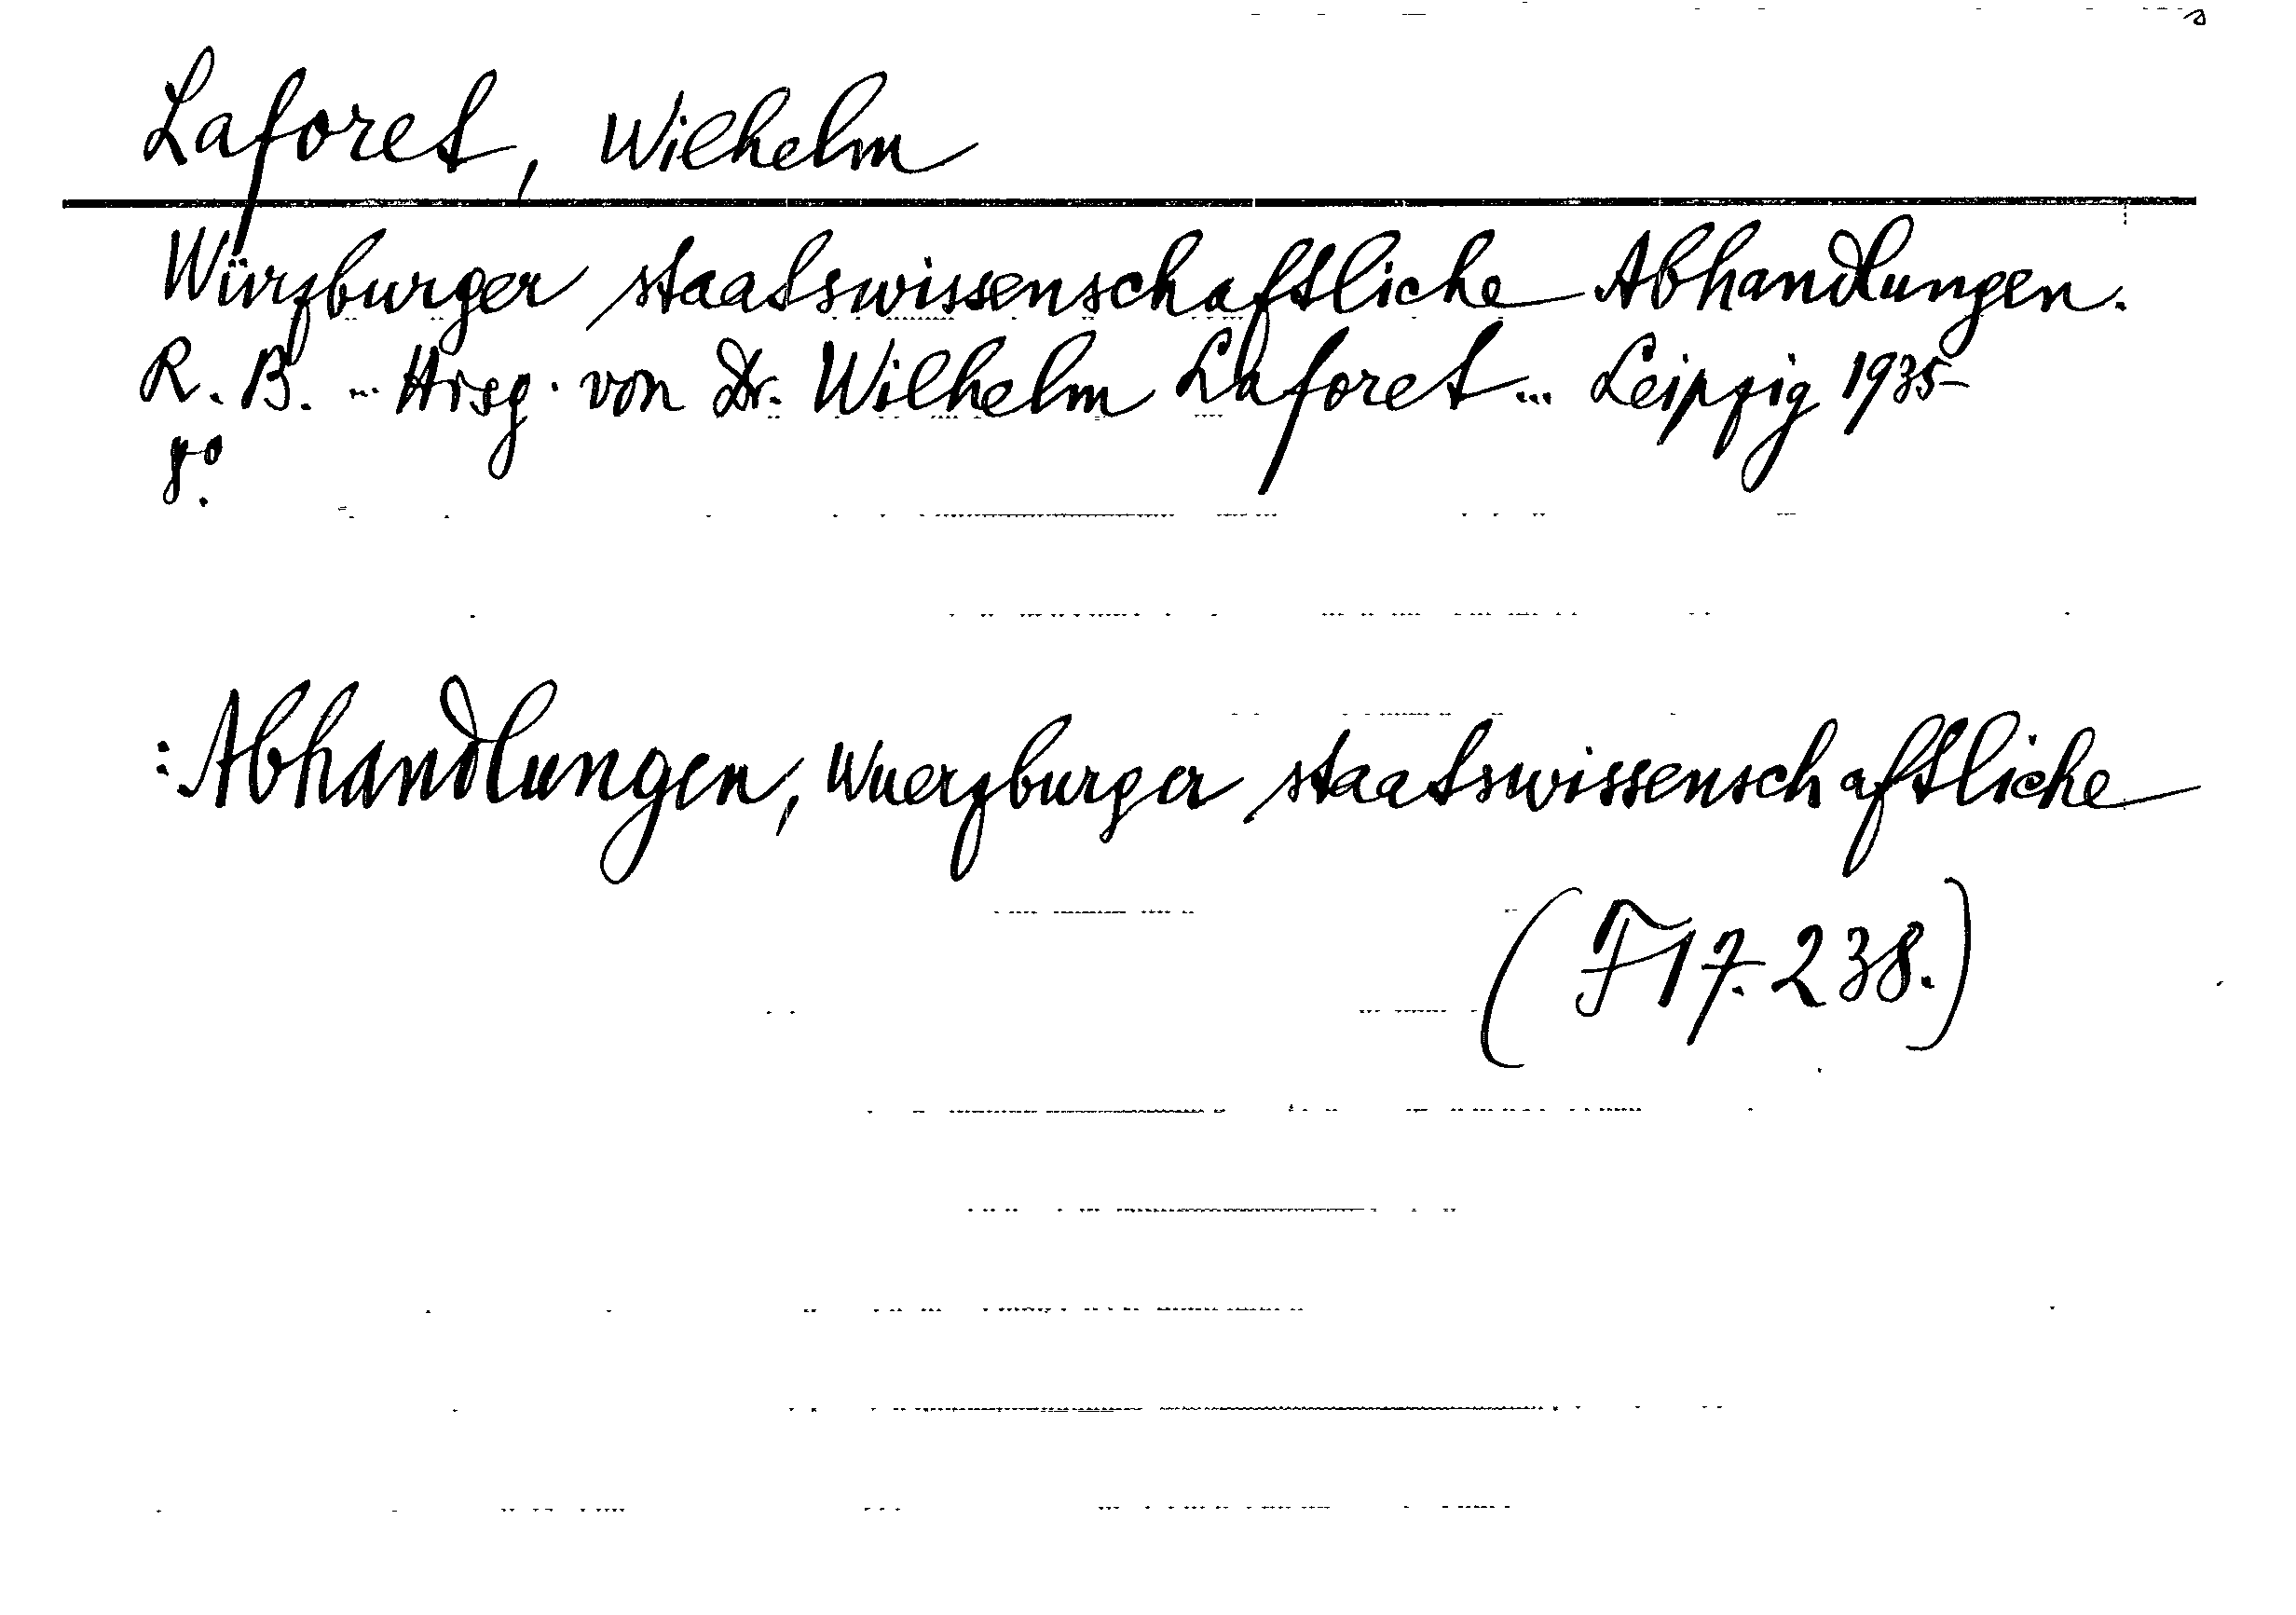 Laforet, Wilhelm
Würzburger staatswissenschaftliche Abhandlungen.
R. B. ... Hrsg. von Dr. Wilhelm Laforet ... Leipzig 1935-
8°.
: Abhandlungen, Wuerzburger staatswissenschaftliche
(F 17. 238.)